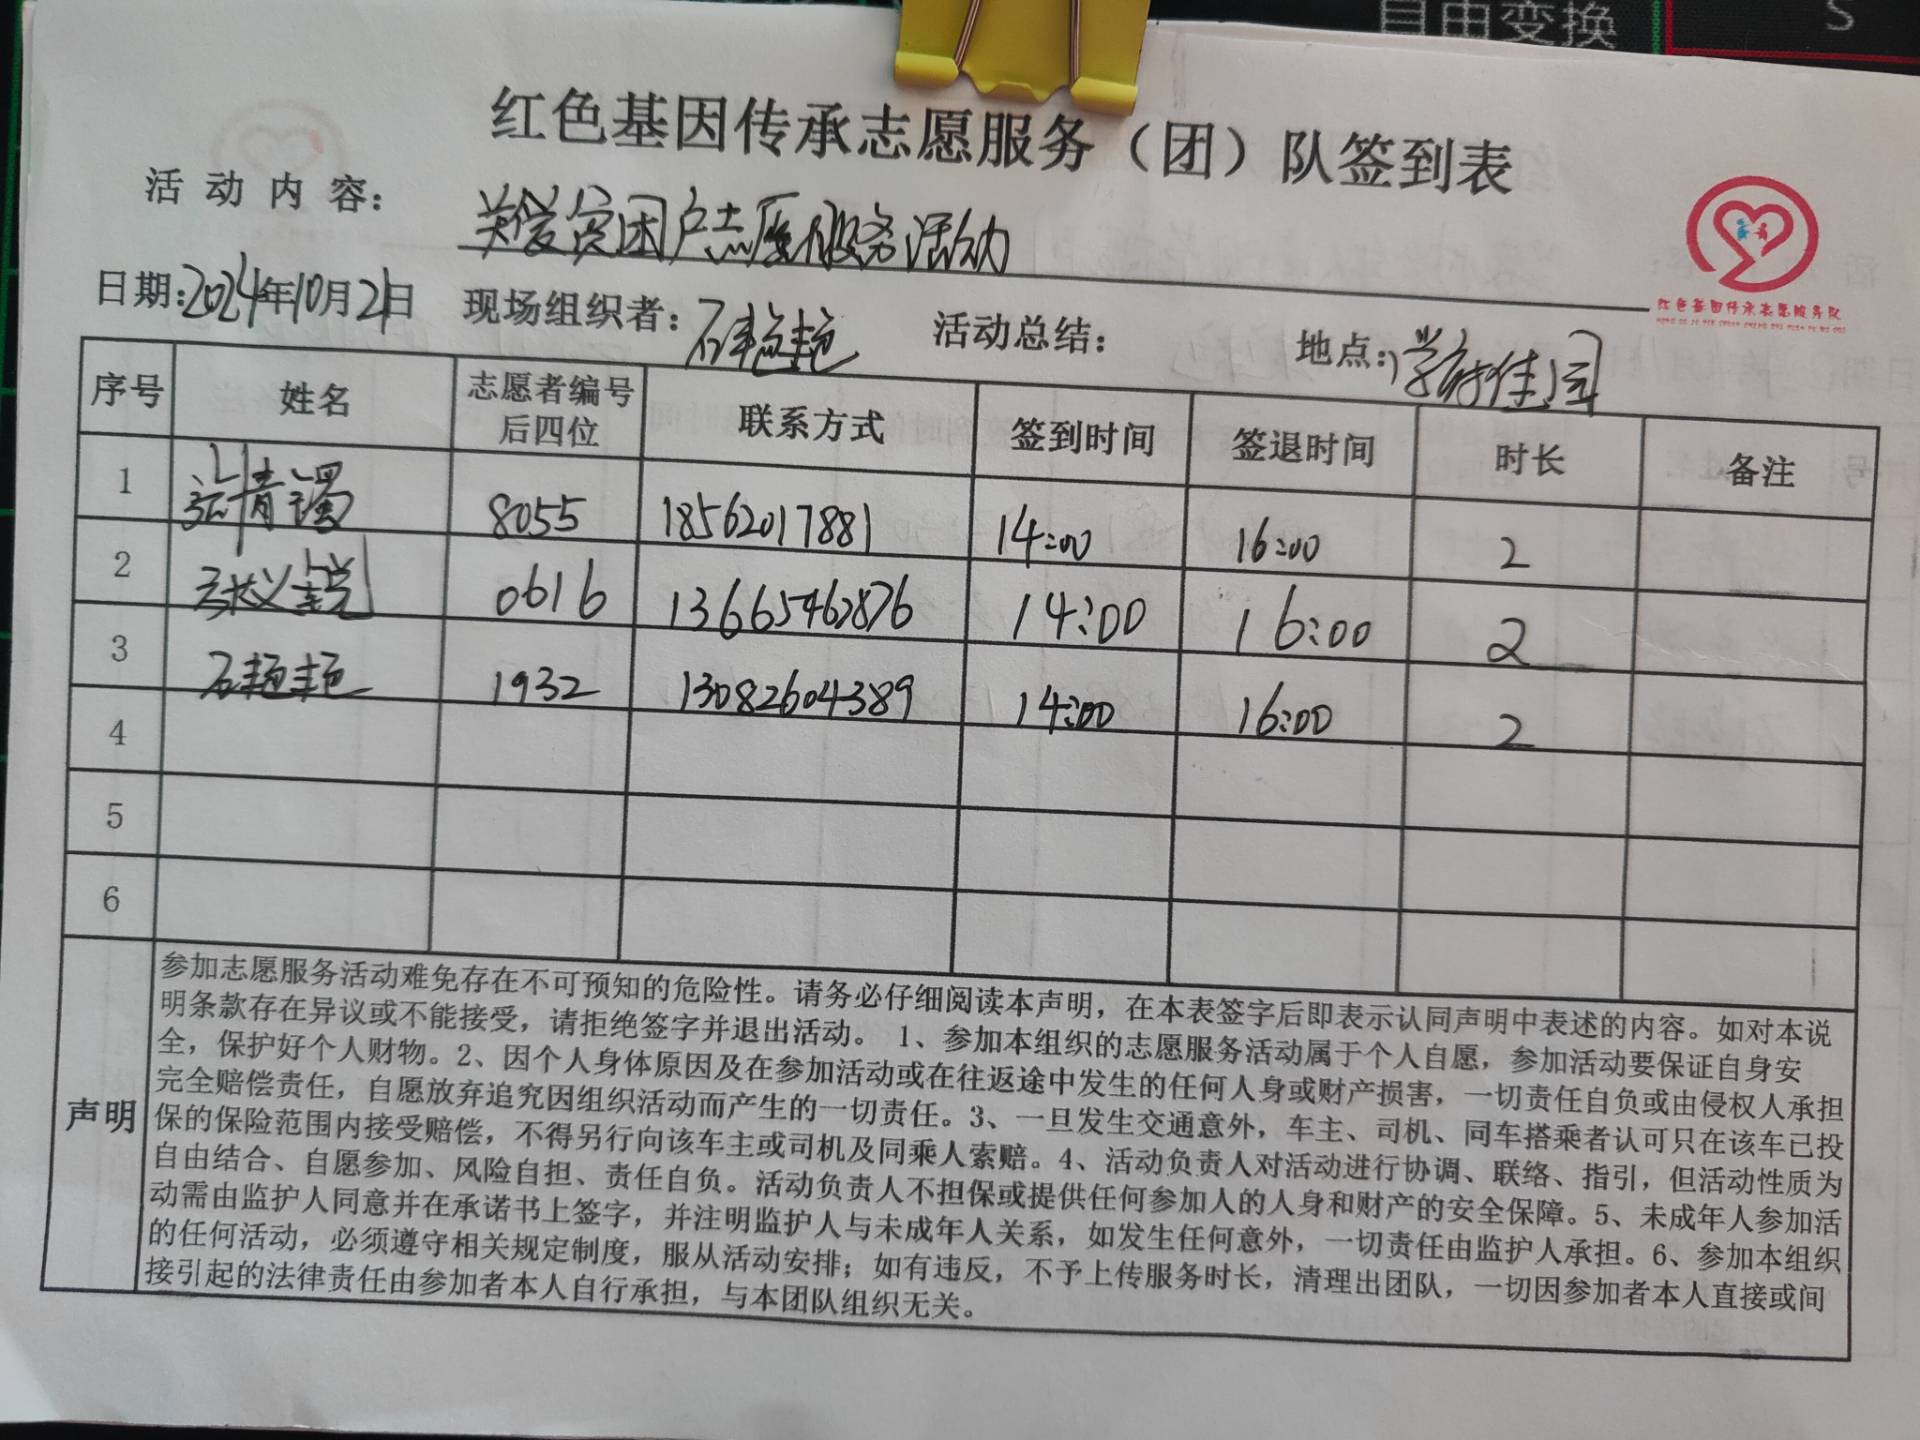 自由变换
S
红色基因传承志愿服务（团）队签到表
活动内容：
关爱贫困户志愿服务活动
红色基因传承志愿服务队
日期：2024年10月21日 现场组织者：石艳艳 活动总结： 地点：学府佳园
序号 姓名 志愿者编号后四位 联系方式 签到时间 签退时间 时长 备注
1 8055 18562017881 14:00 16:00 2
2 0616 13665462876 14:00 16:00 2
3 石艳艳 1932 13082604389 14:00 16:00 2
4
5
6
声明
参加志愿服务活动难免存在不可预知的危险性。请务必仔细阅读本声明，在本表签字后即表示认同声明中表述的内容。如对本说
明条款存在异议或不能接受，请拒绝签字并退出活动。 1、参加本组织的志愿服务活动属于个人自愿，参加活动要保证自身安
全，保护好个人财物。2、因个人身体原因及在参加活动或在往返途中发生的任何人身或财产损害，一切责任自负或由侵权人承担
完全赔偿责任，自愿放弃追究因组织活动而产生的一切责任。3、一旦发生交通意外，车主、司机、同车搭乘者认可只在该车已投
保的保险范围内接受赔偿，不得另行向该车主或司机及同乘人索赔。4、活动负责人对活动进行协调、联络、指引，但活动性质为
自由结合、自愿参加、风险自担、责任自负。活动负责人不担保或提供任何参加人的人身和财产的安全保障。5、未成年人参加活
动需由监护人同意并在承诺书上签字，并注明监护人与未成年人关系，如发生任何意外，一切责任由监护人承担。6、参加本组织
的任何活动，必须遵守相关规定制度，服从活动安排；如有违反，不予上传服务时长，清理出团队，一切因参加者本人直接或间
接引起的法律责任由参加者本人自行承担，与本团队组织无关。